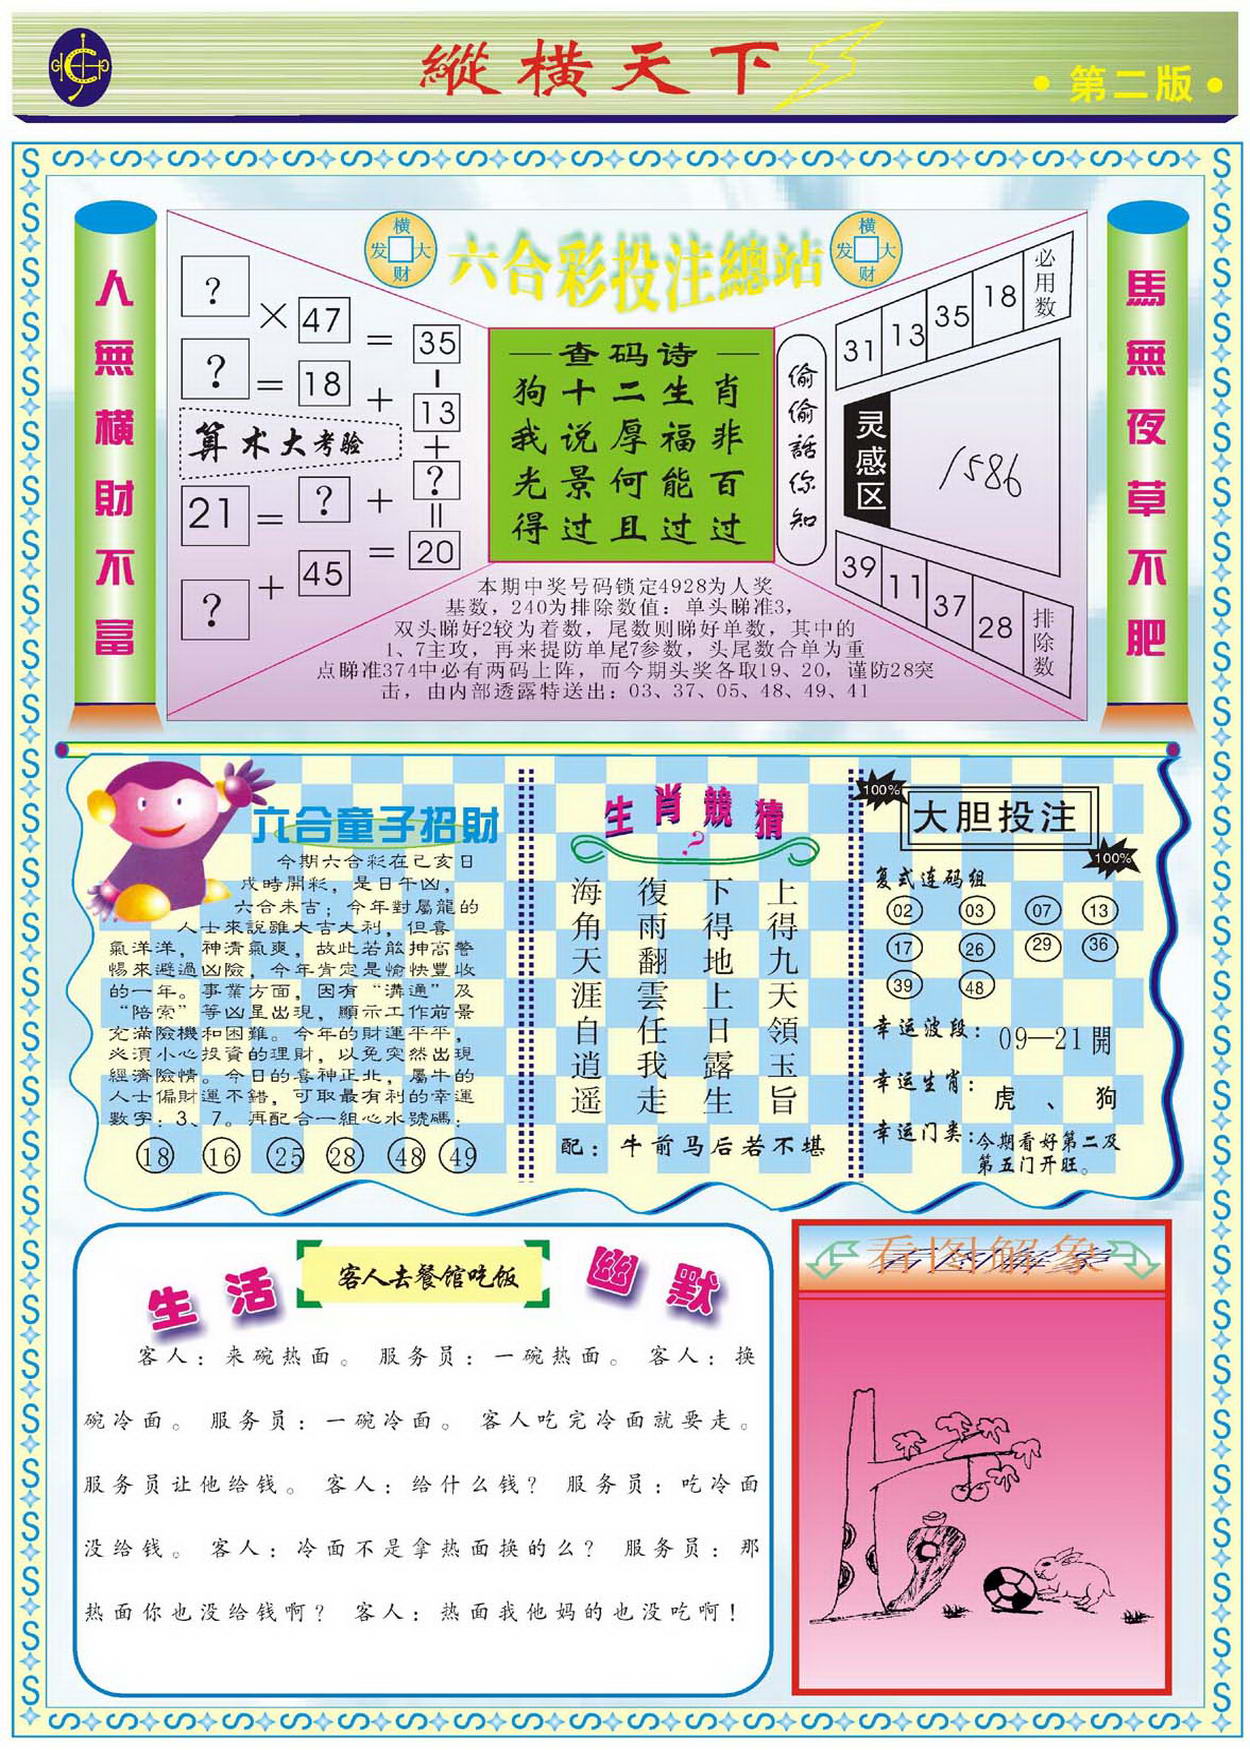 縱橫天下
·第二版·
人無橫財不富
馬無夜草不肥
横
发 大
财
六合彩投注總站
横
发 大
财
? × 47 = 35
? = 18 + 13
算术大考验
21 = ? + ?
? + 45 = 20
查码诗
狗十二生肖
我说厚福非
光景何能百
得过且过过
偷偷話你知
31 13 35 18 必用数
灵感区
1586
39 11 37 28 排除数
本期中奖号码锁定4928为人奖
基数，240为排除数值：单头睇准3，
双头睇好2较为着数，尾数则睇好单数，其中的
1、7主攻，再来提防单尾7参数，头尾数合单为重
点睇准374中必有两码上阵，而今期头奖各取19、20，谨防28突
击，由内部透露特送出：03、37、05、48、49、41
六合童子招財
今期六合彩在己亥日
戌時開彩，是日午凶，
六合未吉；今年對屬龍的
人士來說雖大吉大利，但喜
氣洋洋，神清氣爽，故此若能抻高警
惕來避過凶險，今年肯定是愉快豐收
的一年。事業方面，因有“溝通”及
“陪索”等凶星出現，顯示工作前景
充滿險機和困難。今年的財運平平，
必須小心投資的理財，以免突然出現
經濟險情。今日的喜神正北，屬牛的
人士偏財運不錯，可取最有利的幸運
數字：3、7。再配合一組心水號碼：
18 16 25 28 48 49
生肖競猜
?
上得九天領玉旨
下得地上日露生
復雨翻雲任我走
海角天涯自逍遥
配：牛前马后若不堪
100%
大胆投注
100%
复式连码组
02 03 07 13
17 26 29 36
39 48
幸运波段：09—21開
幸运生肖：虎、狗
幸运门类：今期看好第二及
第五门开旺。
生活
客人去餐馆吃饭
幽默
客人：来碗热面。 服务员：一碗热面。 客人：换
碗冷面。 服务员：一碗冷面。 客人吃完冷面就要走。
服务员让他给钱。 客人：给什么钱？ 服务员：吃冷面
没给钱。 客人：冷面不是拿热面换的么？ 服务员：那
热面你也没给钱啊？ 客人：热面我他妈的也没吃啊！
看图解象